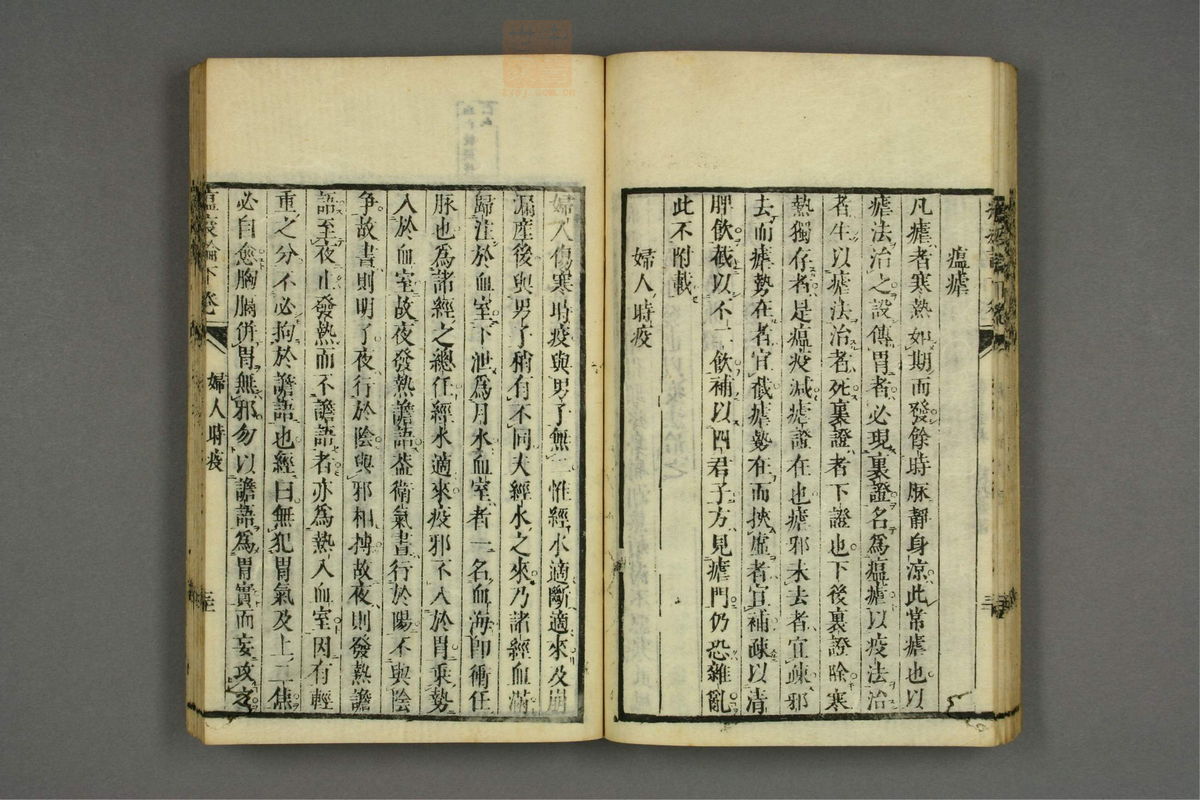 瘟瘧
凡瘧者寒熱如期而發餘時脉靜身涼此常瘧也以
瘧法治之設傳胃者必現裏證名爲瘟瘧以疫法治
者生以瘧法治者死裏證者下證也下後裏證除寒
熱獨存者是瘟疫減瘧證在也瘧邪未去者宜疎邪
去而瘧勢在者宜截瘧勢在而挾虛者宜補疎以清
脾飲截以不二飲補以四君子方見瘧門仍恐雜亂
此不附載
婦人時疫
婦人傷寒時疫與男子無二惟經水適斷適來及崩
漏產後與男子稍有不同夫經水之來乃諸經血滿
歸注於血室下泄爲月水血室者一名血海卽衝任
脉也爲諸經之總任經水適來疫邪不入於胃乘勢
入於血室故夜發熱譫語葢衛氣晝行於陽不與陰
爭故晝則明了夜行於陰與邪相搏故夜則發熱譫
語至夜止發熱而不譫語者亦爲熱入血室因有輕
重之分不必拘於譫語也經曰無犯胃氣及上二焦
必自愈胸膈併胃無邪勿以譫語爲胃實而妄攻之
瘟疫論下卷 婦人時疫